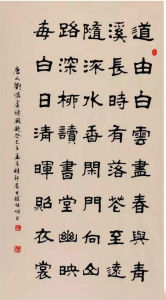 道由白雲盡春與青
溪長時有落花至遠
隨流水香閑門向山
路深柳讀書堂幽映
每白日清暉照衣裳
唐人劉慎虛詩闕題癸巳年